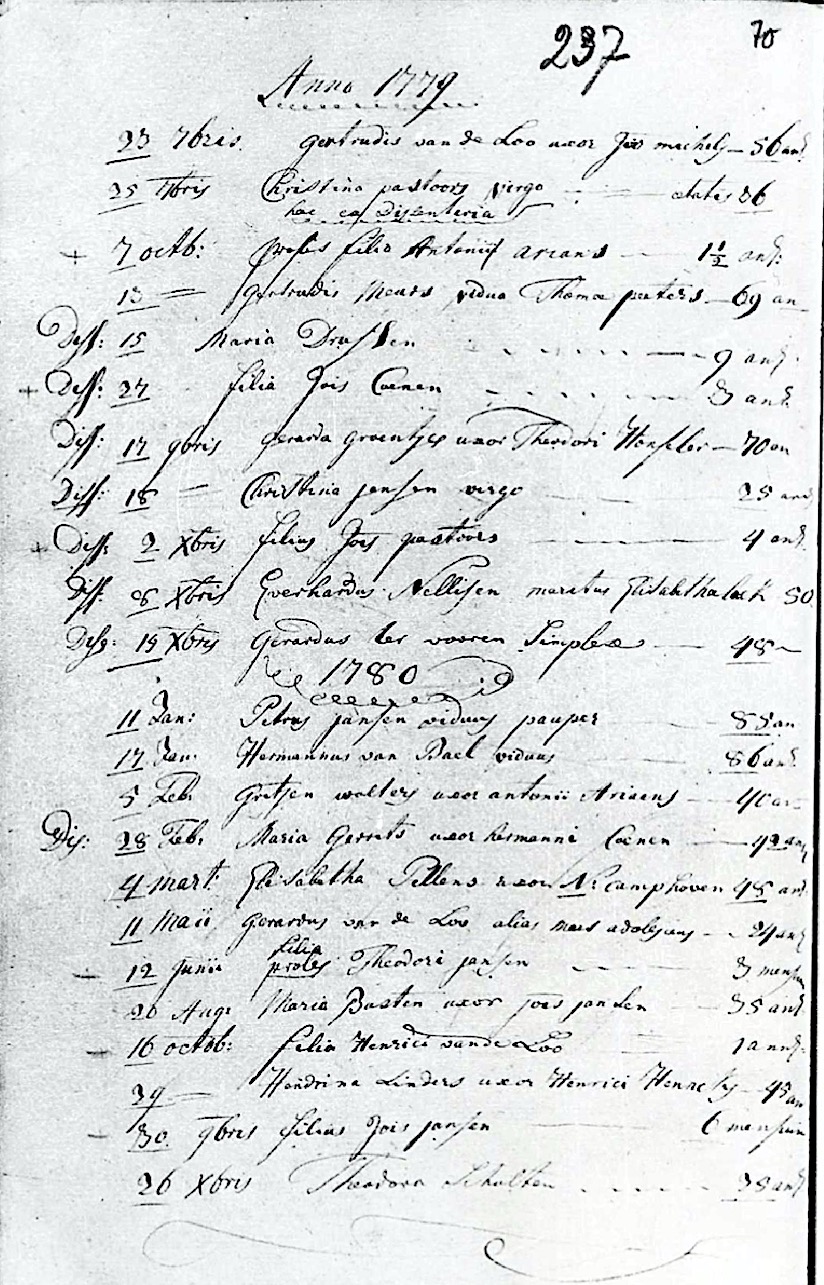 237 70
Anno 1779
23 7bris gertrudis van de Loo uxor Jois michels — 56 an
25 7bris Christina pastoors virgo ætatis 36
hæc ex Disenteria
+ 7 octb: proles filia Antonii arians — 1½ an
13 = gertrudis Meurs vidua Thomæ peeters — 69 an
Diss: 15 Maria Drussen — 9 an
+ Diss: 27 filia Jois Coenen 3 an
Diss: 17 9bris gerarda groentjes uxor Theodori Henseler — 70 an
Diss: 18 = Christina jansen virgo 25 an
+ Diss: 2 Xbris filius Jois pastoors 4 an
Diss: 8 Xbris Everhardus Nellisen maritus Elisabetha 50
Diss: 19 Xbris Gerardus ter vooren Simplex — 48
1780
11 Jan: Petrus jansen viduus pauper 88 an
17 Jan: Hermannus van Bael viduus 86 an
5 Feb: Gretjen wolters uxor antonii Ariaens — 40 an
Dis: 28 Feb: Maria Gerrits uxor hermanni Coenen — 42 an
4 mart: Elisabetha Pellens uxor N: camphoven 48 an
11 Maii gerardus van de Loo alias maes adolescens — 24 an
filia
— 12 junii proles Theodori jansen 3 mensium
20 Aug: Maria Basten uxor jois jansen 35 an
— 16 octob: filia Henrici vande Loo 1 anni
29 — Hendrina Linders uxor Henrici — 45 an
— 30 9bris filius Jois jansen 6 mensium
26 Xbris Theodora Scholten 38 an